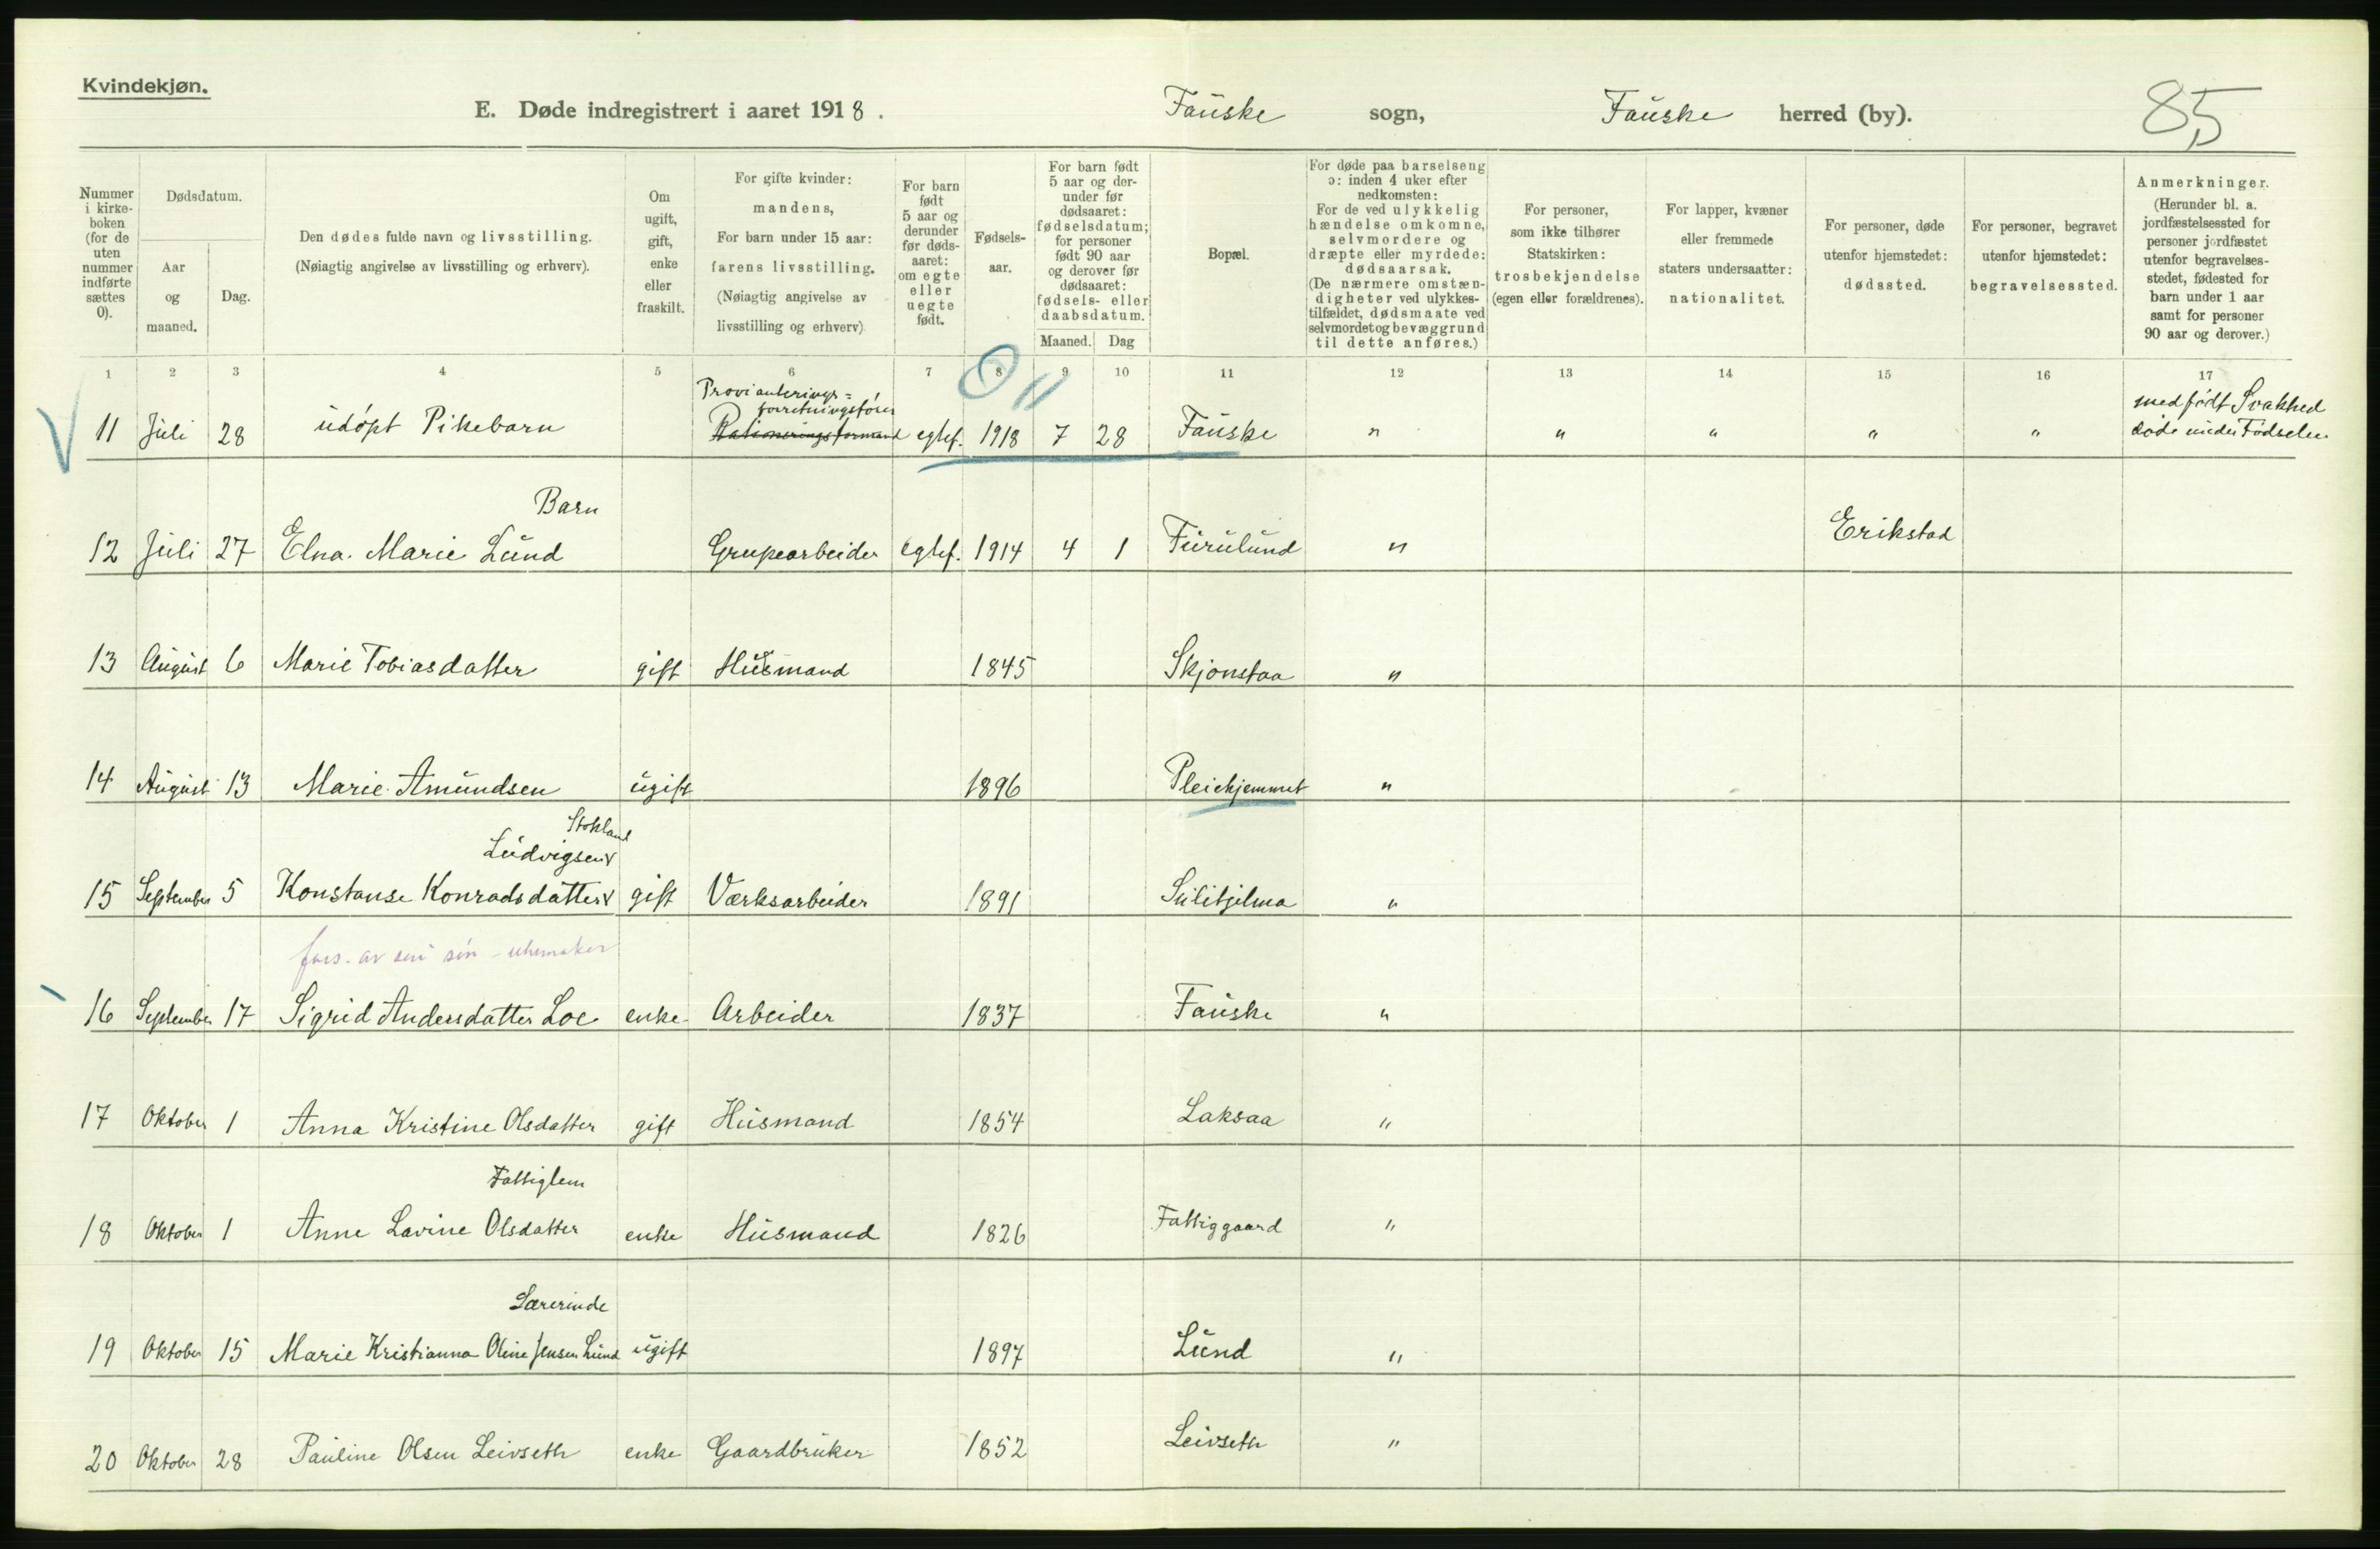 Kvindekjøn.
E. Døde indregistrert i aaret 1918. Fauske sogn, Fauske herred (by). 85
Nummer i kirke-boken (for de uten nummer indførte sættes 0).
Dødsdatum.
Aar og maaned.
Dag.
Den dødes fulde navn og livsstilling.
(Nøiagtig angivelse av livsstilling og erhverv).
Om ugift, gift, enke eller fraskilt.
For gifte kvinder: mandens, For barn under 15 aar: farens livsstilling. (Nøiagtig angivelse av livsstilling og erhverv)
For barn født 5 aar og derunder før døds-aaret: om egte eller uegte født.
Fødsels-aar.
For barn født 5 aar og der-under før dødsaaret: fødselsdatum; for personer født 90 aar og derover før dødsaaret: fødsels- eller daabsdatum.
Maaned. Dag
Bopæl.
For døde paa barselseng ɔ: inden 4 uker efter nedkomsten: For de ved ulykkelig hændelse omkomne, selvmordere og dræpte eller myrdede: dødsaarsak. (De nærmere omstæn-digheter ved ulykkes-tilfældet, dødsmaate ved selvmordet og bevæggrund til dette anføres.)
For personer, som ikke tilhører Statskirken: trosbekjendelse (egen eller forældrenes).
For lapper, kvæner eller fremmede staters undersaatter: nationalitet.
For personer, døde utenfor hjemstedet: dødssted.
For personer, begravet utenfor hjemstedet: begravelsessted.
Anmerkninger. (Herunder bl. a. jordfæstelsessted for personer jordfæstet utenfor begravelses-stedet, fødested for barn under 1 aar samt for personer 90 aar og derover.)
1 2 3 4 5 6 7 8 9 10 11 12 13 14 15 16 17
Provianterings=
forretningsfører
medfødt Svakhed
11 Juli 28 udøpt Pikebarn Rationeringsformand egtef. 1918 7 28 Fauske " " " " " døde under Fødselen
Barn
12 Juli 27 Elna Marie Lund Grupearbeider egtef. 1914 4 1 Furulund " Erikstad
13 August 6 Marie Tobiasdatter gift Husmand 1845 Skjonstaa "
14 August 13 Marie Amundsen ugift 1896 Pleiehjemmet "
Stokland
Ludvigsen
15 September 5 Konstanse Konradsdatter gift Værksarbeider 1891 Sulitjelma "
fors. av sin søn - uhrmaker
16 September 17 Sigrid Andersdatter Loe enke Arbeider 1837 Fauske "
17 Oktober 1 Anna Kristine Olsdatter gift Husmand 1854 Laksaa "
Fattiglem
18 Oktober 1 Anne Lavine Olsdatter enke Husmand 1826 Fattiggaard "
Lærerinde
19 Oktober 15 Marie Kristianna Oline Jensen Lund ugift 1897 Lund "
20 Oktober 28 Pauline Olsen Leivseth enke Gaardbruker 1852 Leivseth "